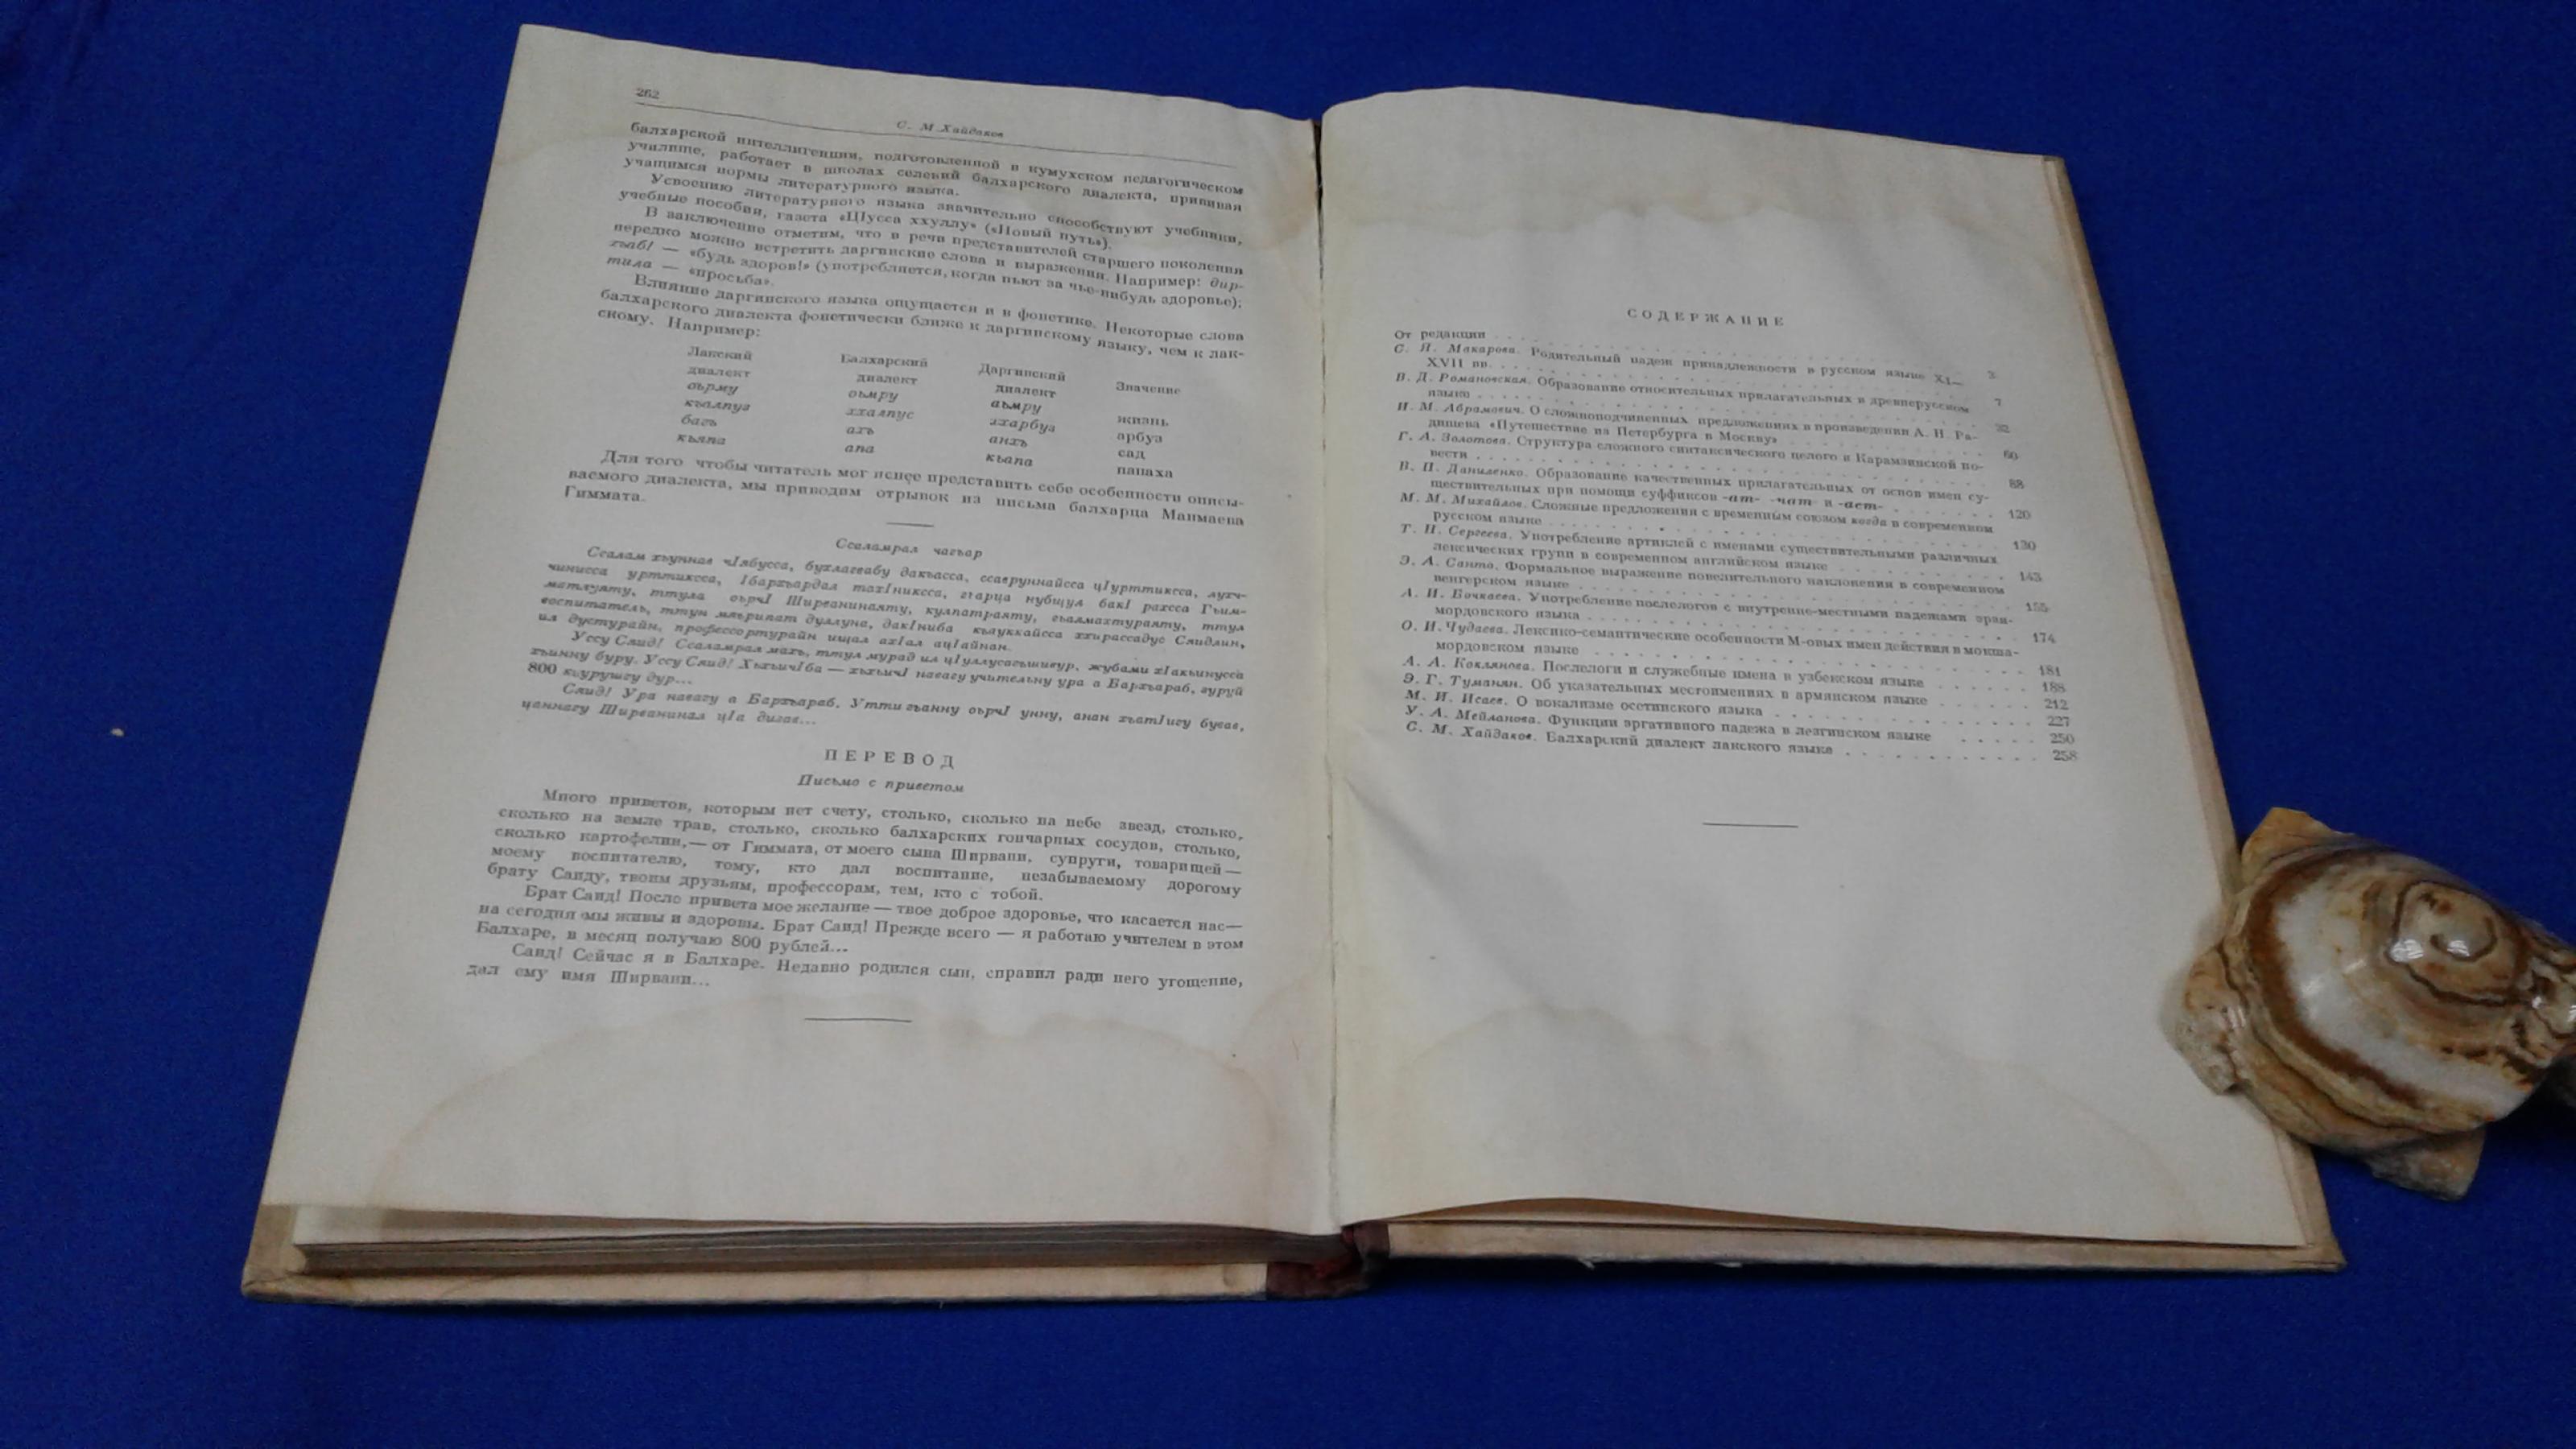 262
С. М. Хайдаков
балхарской интеллигенции, подготовленной в кумухском педагогическом
училище, работает в школах селений балхарского диалекта, прививая
учащимся нормы литературного языка.
Усвоению литературного языка значительно способствуют учебники,
учебные пособия, газета «ЦӀусса ххуллу» («Новый путь»).
В заключение отметим, что в речи представителей старшего поколения
нередко можно встретить даргинские слова и выражения. Например: дир-
хъаб! — «будь здоров!» (употребляется, когда пьют за чье-нибудь здоровье);
тила — «просьба».
Влияние даргинского языка ощущается и в фонетике. Некоторые слова
балхарского диалекта фонетически ближе к даргинскому языку, чем к лак-
скому. Например:
Лакский диалект Балхарский диалект Даргинский диалект Значение
оьрму оьмру аьмру жизнь
къалпуз ххалпус ххарбуз арбуз
багъ ахъ анхъ сад
кьяпа апа кьапа папаха
Для того чтобы читатель мог яснее представить себе особенности описы-
ваемого диалекта, мы приводим отрывок из письма балхарца Манмаева
Гиммата.
Ссаламрал чагъар
Ссалам хъуннав чӀявусса, бухлагвабу дакъасса, ссавруннайсса цӀурттиксса, лухч-
чинисса урттиксса, Ӏбархъардал тахӀниксса, гьарца нубщул бакӀ рахсса Гьим-
матлуяту, ттула оьрчӀ Ширванинаяту, кулпатраяту, гьалмахтураяту, ттул
воспитатель, ттун мяърипат дуллуна, дакӀниба къаукхайсса ххирассадус Сяидлин,
ил дустурайн, профессортурайн ищал ахӀал ацӀайнан.
Уссу Сяид! Ссаламрал махъ, ттул мурад ил цӀуллусагъшивур, жубами хӀакьинусса
хъинну буру. Уссу Сяид! ХьхьичӀба — хьхьичӀ навагу учительну ура а Бархъараб, зуруй
800 къурушгу дур...
Сяид! Ура навагу а Бархъараб. Утти гьанну оьрчӀ унну, анан хъатӀигу бував,
цаннагу Ширванинал цӀа дизав...
ПЕРЕВОД
Письмо с приветом
Много приветов, которым нет счету, столько, сколько на небе звезд, столько,
сколько на земле трав, столько, сколько балхарских гончарных сосудов, столько,
сколько картофелин,— от Гиммата, от моего сына Ширвани, супруги, товарищей —
моему воспитателю, тому, кто дал воспитание, незабываемому дорогому
брату Саиду, твоим друзьям, профессорам, тем, кто с тобой.
Брат Саид! После привета мое желание — твое доброе здоровье, что касается нас—
на сегодня мы живы и здоровы. Брат Саид! Прежде всего — я работаю учителем в этом
Балхаре, в месяц получаю 800 рублей...
Саид! Сейчас я в Балхаре. Недавно родился сын, справил ради него угощение,
дал ему имя Ширвани...
СОДЕРЖАНИЕ
От редакции . . . 3
С. Я. Макарова. Родительный падеж принадлежности в русском языке XI—
XVII вв. . . . 7
В. Д. Романовская. Образование относительных прилагательных в древнерусском
языке . . . 32
И. М. Абрамович. О сложноподчиненных предложениях в произведении А. Н. Ра-
дищева «Путешествие из Петербурга в Москву» . . . 60
Г. А. Золотова. Структура сложного синтаксического целого в Карамзинской по-
вести . . . 88
В. П. Даниленко. Образование качественных прилагательных от основ имен су-
ществительных при помощи суффиксов -ат- -чат- и -аст- . . . 120
М. М. Михайлов. Сложные предложения с временным союзом когда в современном
русском языке . . . 130
Т. Н. Сергеева. Употребление артиклей с именами существительными различных
лексических групп в современном английском языке . . . 143
Э. А. Санто. Формальное выражение повелительного наклонения в современном
венгерском языке . . . 155
А. И. Бочкаева. Употребление послелогов с внутренне-местными падежами эрзя-
мордовского языка . . . 174
О. И. Чудаева. Лексико-семантические особенности М-овых имен действия в мокша-
мордовском языке . . . 181
А. А. Коклянова. Послелоги и служебные имена в узбекском языке . . . 188
Э. Г. Туманян. Об указательных местоимениях в армянском языке . . . 212
М. И. Исаев. О вокализме осетинского языка . . . 227
У. А. Мейланова. Функции эргативного падежа в лезгинском языке . . . 250
С. М. Хайдаков. Балхарский диалект лакского языка . . . 258